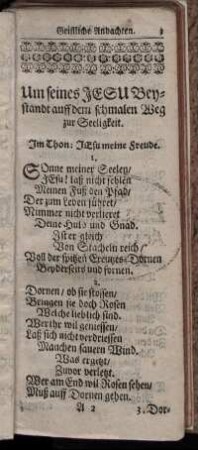 Geistliche Andachten. 3
Um seines JESU Bey-
standt auff dem schmalen Weg
zur Seeligkeit.
Im Thon: JEsu meine Freude.
1.
SOnne meiner Seelen/
JEsu! laß nicht fehlen
Meinen Fuß den Pfad/
Der zum Leben führet/
Nimmer nicht verlieret
Deine Huld und Gnad.
Ist er gleich
Von Stacheln reich/
Voll der spitzen Creutzes-Dornen
Beyderseits und fornen.
2.
Dornen/ ob sie stossen/
Bringen sie doch Rosen
Welche lieblich sind.
Wer ihr wil geniessen/
Laß sich nicht verdriessen
Manchen sauern Wind.
Was ergetzt/
Zuvor verletzt.
Wer am End wil Rosen sehen/
Muß auff Dornen gehen.
A 2 3. Dor-